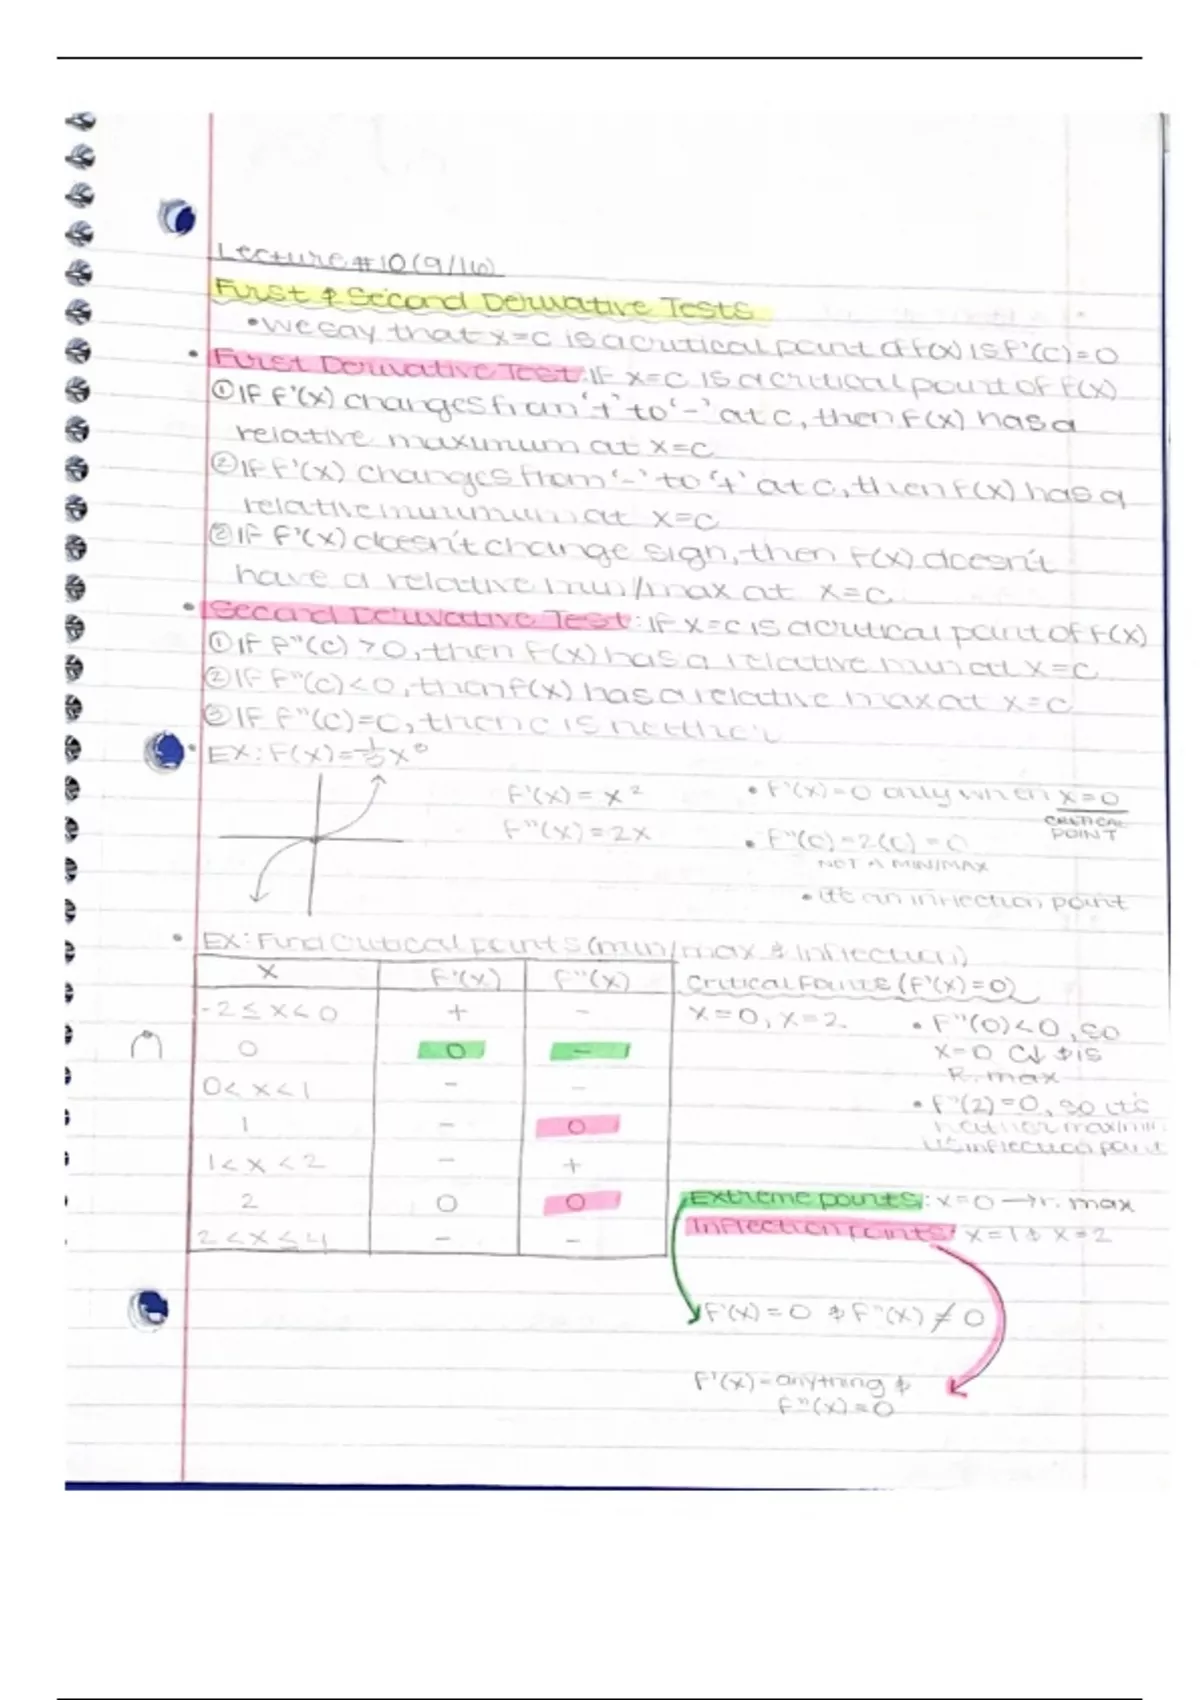 Lecture #10 (9/16)
First & Second Derivative Tests
• We say that x=c is a critical point of f(x) is f'(c)=0
• First Derivative Test: IF x=c is a critical point of f(x)
① IF f'(x) changes from '+' to '-' at c, then f(x) has a
relative maximum at x=c
② IF f'(x) changes from '-' to '+' at c, then f(x) has a
relative minimum at x=c
③ IF f'(x) doesn't change sign, then f(x) doesn't
have a relative min/max at x=c
• Second Derivative Test: IF x=c is a critical point of f(x)
① IF f"(c) >0, then f(x) has a relative min at x=c
② IF f"(c)<0, then f(x) has a relative max at x=c
③ IF f"(c)=0, then c is neither
• EX: F(x)=
f'(x) = x²
• f'(x)=0 only when x=0
CRITICAL
POINT
f"(x)=2x
• f"(0)=2(0)=0
NOT A MIN/MAX
• it's an inflection point
• EX: Find Critical points (min/max & inflection)
x f'(x) f"(x)
-2≤x<0 + -
0 0 -
0<x<1 - -
1 - 0
1<x<2 - +
2 0 0
2<x≤4 - -
Critical Points (f'(x)=0)
x=0, x=2
• f"(0)<0, so
x=0 is
R. max
• f"(2)=0, so it's
neither max/min
inflection point
Extreme points: x=0 → r. max
Inflection points: x=1 & x=2
f'(x)=0 & f"(x) ≠ 0
f'(x)=anything &
f"(x)=0